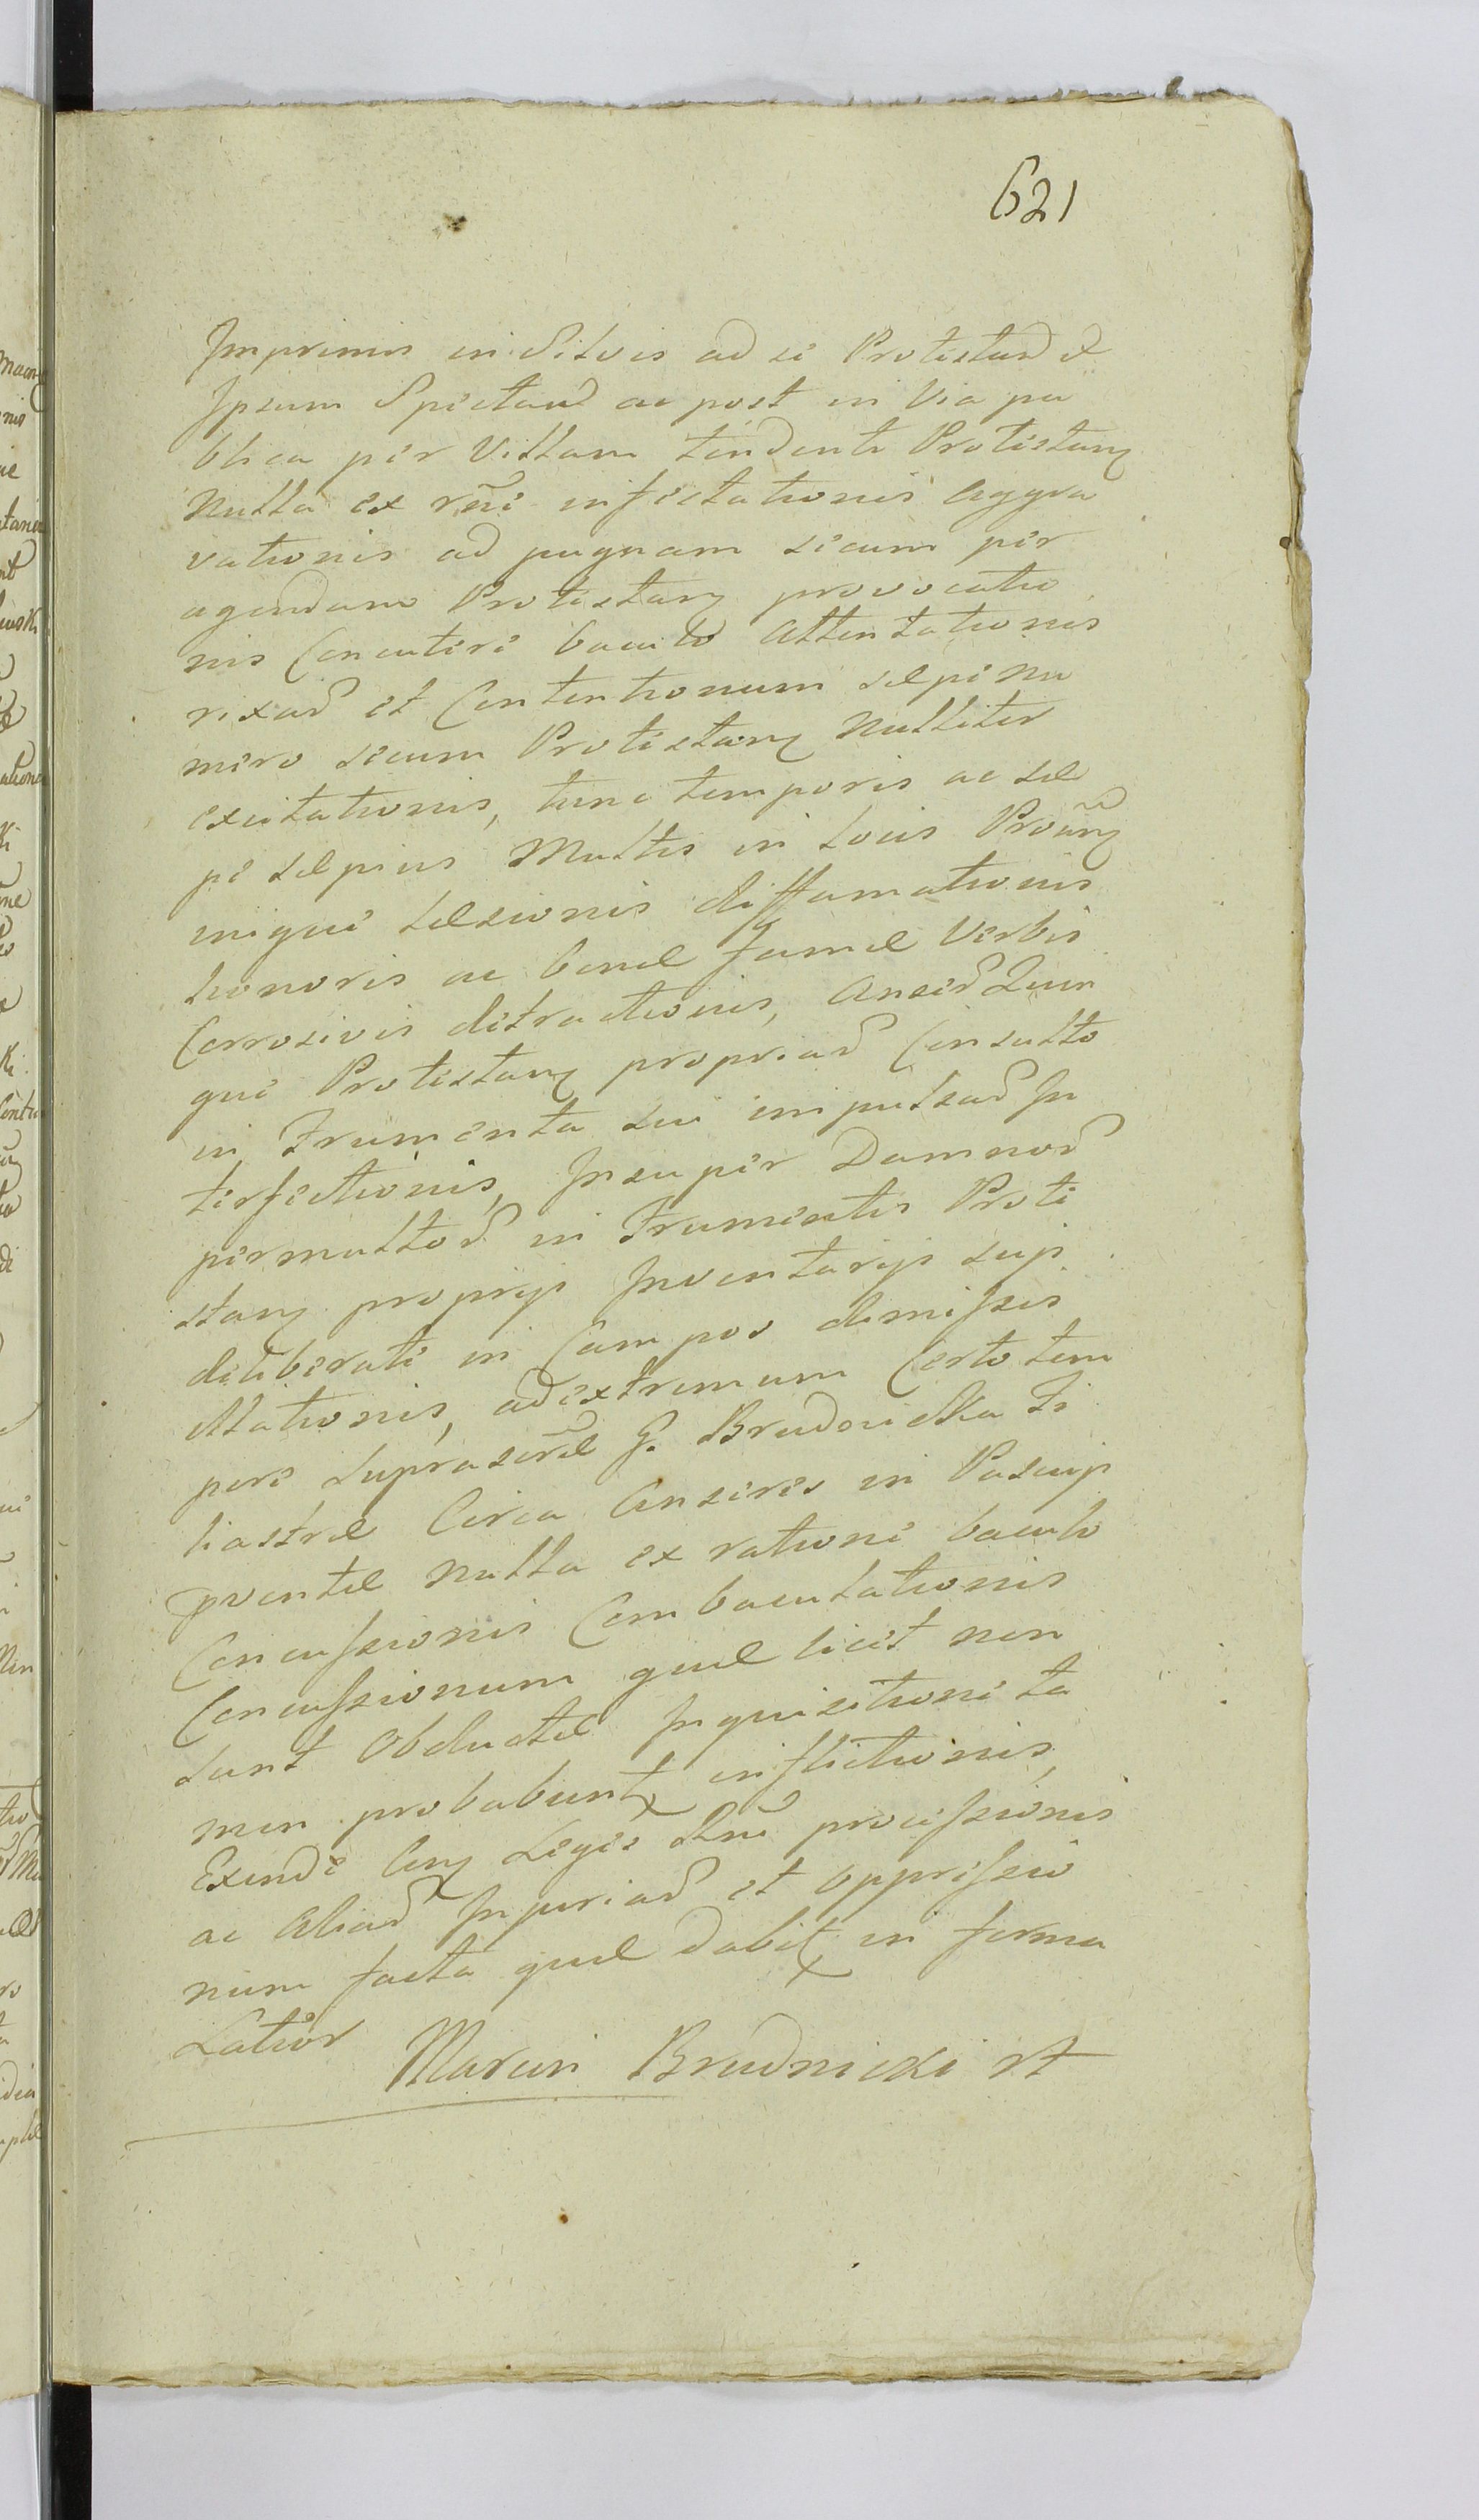 621
Imprimis in Silvis ad se Protestand et
Ipsum Spectand ac post in Via pu
blica per Villam tendenti Protestanq
Nulla ex rñe infectationis aggra
vationis ad pugnam secum per
agendam Protestanq provocatio
nis Concuteri baculo attentationis
rixad et Contentionum sæpe nu
mero secum Protestanq Nulliter
excitationis, tunc temporis ac sæ
pe sæpius Multis in locis Proañq
inique Læsionis diffamationis
honoris ac bonæ famæ verbis
Corrosivis detractionis, ansed Quin
que Protestanq propriad Consulto
in Frumenta sui impulsad In
terfectionis, Insuper Damnod
permultod in Frumentis Prote
stanq proprys Inventarys suys
deliberate in Campos dimissis
illationis, ad extremum Certo tem
pore suprascræ G. Brudnicka Fi
liastræ Circa Anseres in Pascuys
pventæ Nulla ex ratione baculo
Concussionis Combaculationis
Concussionum quæ licet non
sunt Obductæ Inquisitione ta
men probabunt inflictionis,
Exinde Cinq Legis Dni processionis
ac aliad Injuriad et oppressio
num facta quæ dabit in forma
Latior
Marcin Brudnicki rt